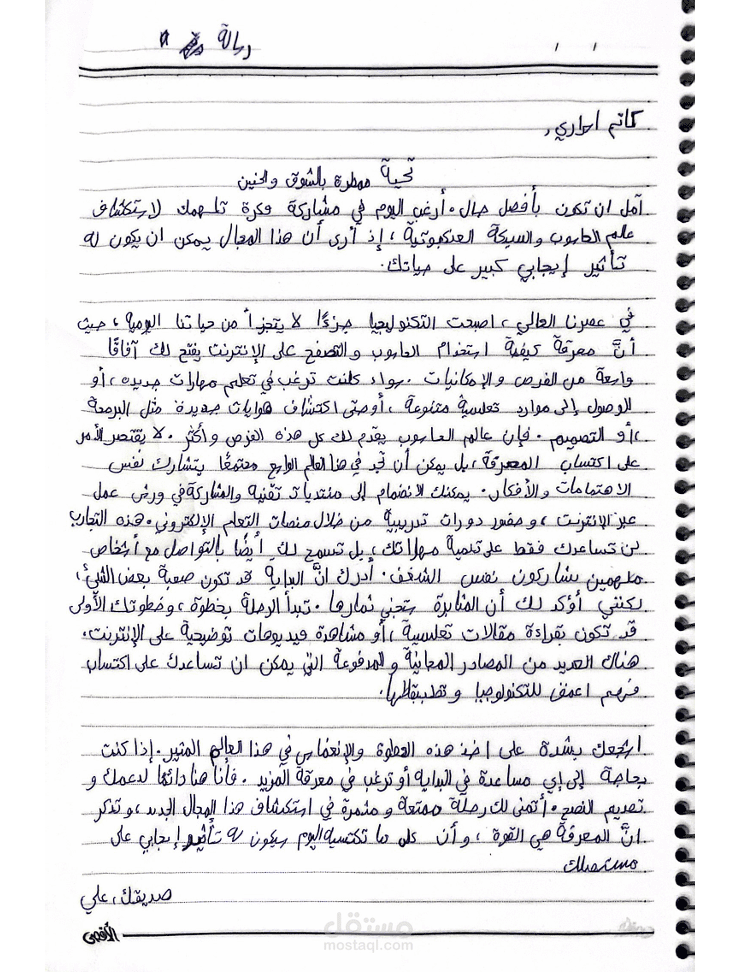 رسالة "
كاتم اسراري,
تحية معطرة بالشوق والحنين
آمل ان تكون بأفضل حال. أرغب اليوم في مشاركة فكرة تلهمك لاستكشاف
عالم الحاسوب والشبكة العنكبوتية، إذ أرى أن هذا المجال يمكن ان يكون له
تأثير إيجابي كبير على حياتك.
في عصرنا الحالي، اصبحت التكنولوجيا جزءًا لا يتجزأ من حياتنا اليومية، حيث
أنَّ معرفة كيفية استخدام الحاسوب والتصفح على الإنترنت يفتح لك آفاقًا
واسعة من الفرص والإمكانيات. سواء كنت ترغب في تعلم مهارات جديده، أو
الوصول إلى موارد تعليمية متنوعة، أو حتى اكتشاف هوايات جديدة مثل البرمجة
،أو التصميم. فإن عالم الحاسوب يقدم لك كل هذه الفرص وأكثر. لا يقتصر الأمر
على اكتساب المعرفة، بل يمكن أن تجد في هذا العالم الواسع مجتمعًا يتشارك نفس
الاهتمامات والأفكار. يمكنك الانضمام إلى منتديات تقنية والمشاركة في ورش عمل
عبر الإنترنت، وحضور دورات تدريبية من خلال منصات التعلم الإلكتروني. هذه التجارب
لن تساعدك فقط على تنمية مهاراتك، بل تسمح لك أيضًا بالتواصل مع أشخاص
ملهمين يشاركون نفس الشغف. أدرك انَّ البداية قد تكون صعبة بعض الشيئ،
لكنني أؤكد لك أن المثابرة ستجني ثمارها. تبدأ الرحلة بخطوة، وخطوتك الأولى
قد تكون بقراءة مقالات تعليمية، أو مشاهدة فيديوهات توضيحية على الإنترنت.
هناك العديد من المصادر المجانية والمدفوعة التي يمكن ان تساعدك على اكتساب
فهم اعمق للتكنولوجيا وتطبيقاتها.
اشجعك بشدة على اخذ هذه الخطوة والإنغماس في هذا العالم المثير. إذا كنت
بحاجة إلى إي مساعدة في البداية أو ترغب في معرفة المزيد. فأنا هنا دائمًا لدعمك و
تقديم النصح. أتمنى لك رحلة ممتعة و مثمرة في استكشاف هذا المجال الجديد، وتذكر
انَّ المعرفة هي القوة، وأن كل ما تكتسبه اليوم سيكون له تأثير إيجابي على
مستقبلك
صديقك، علي
الأقصى
مستقل
mostaql.com